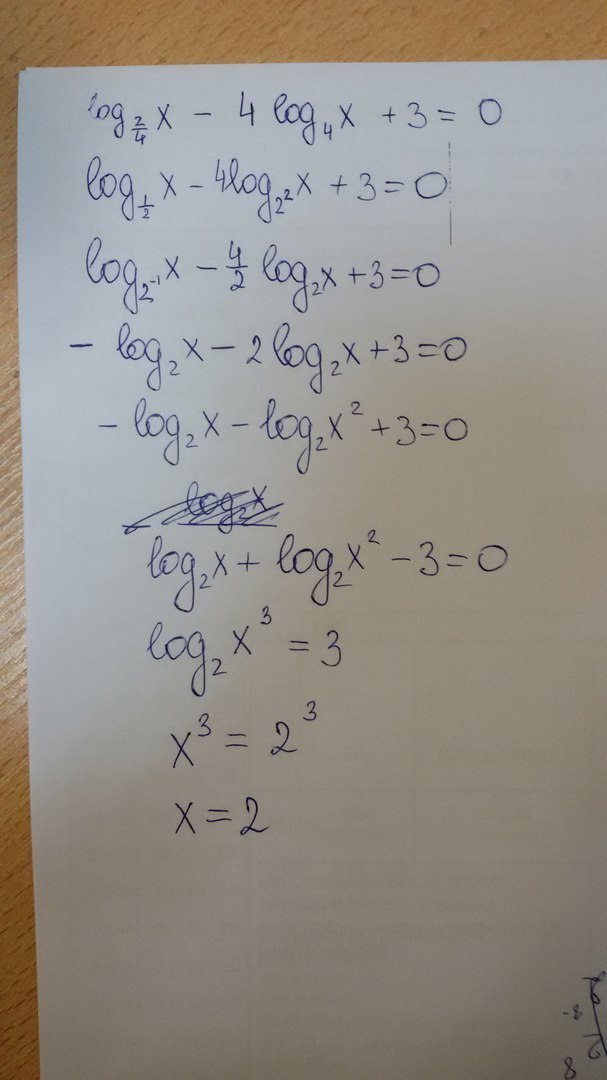 log_{2/4} x - 4 log_4 x + 3 = 0
log_{1/2} x - 4log_{2^2} x + 3 = 0
log_{2^{-1}} x - 4/2 log_2 x + 3 = 0
- log_2 x - 2 log_2 x + 3 = 0
- log_2 x - log_2 x^2 + 3 = 0
log_2 x
log_2 x + log_2 x^2 - 3 = 0
log_2 x^3 = 3
x^3 = 2^3
x = 2